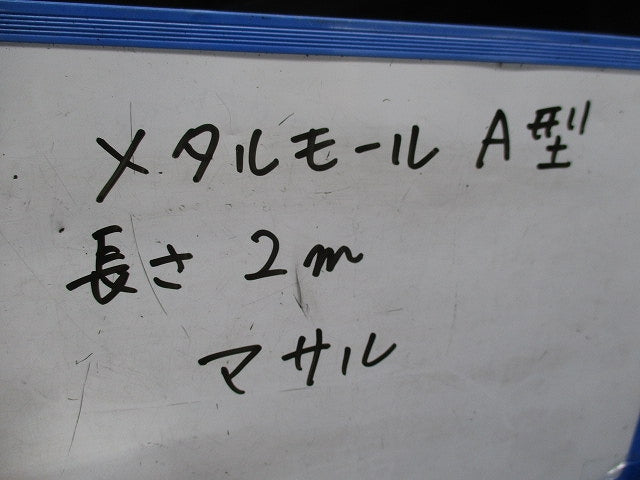 メタルモール A型
長さ 2m
マサル